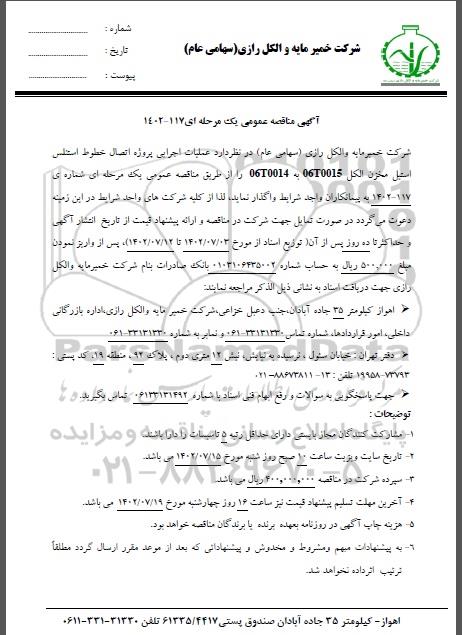 شماره : ............................
تاریخ : ............................
پیوست : ............................
شرکت خمیر مایه و الکل رازی(سهامی عام)
آگهی مناقصه عمومی یک مرحله ای۱۱۷-۱۴۰۲
شرکت خمیرمایه والکل رازی (سهامی عام) در نظردارد عملیات اجرایی پروژه اتصال خطوط استنلس
استیل مخزن الکل 06T0015 به 06T0014 را از طریق مناقصه عمومی یک مرحله ای شماره ی
۱۱۷-۱۴۰۲ به پیمانکاران واجد شرایط واگذار نماید، لذا از کلیه شرکت های واجد شرایط در این زمینه
دعوت می‌گردد در صورت تمایل جهت شرکت در مناقصه و ارائه پیشنهاد قیمت از تاریخ انتشار آگهی
و حداکثرتا ده روز پس از آن( توزیع اسناد از مورخ ۱۴۰۲/۰۷/۰۳ تا ۱۴۰۲/۰۷/۱۲)، پس از واریز نمودن
مبلغ ۵۰۰,۰۰۰ ریال به حساب شماره ۰۱۰۳۱۰۶۴۳۵۰۰۲ بانک صادرات بنام شرکت خمیرمایه والکل
رازی جهت دریافت اسناد به نشانی ذیل الذکر مراجعه نمایند:
اهواز کیلومتر ۳۵ جاده آبادان،جنب دعبل خزاعی،شرکت خمیر مایه والکل رازی،اداره بازرگانی
داخلی، امور قراردادها، شماره تماس۳۳۱۳۱۳۳۰-۰۶۱ و نمابر به شماره ۳۳۱۳۱۳۳۰-۰۶۱
دفتر تهران : خیابان سئول ، نرسیده به نیایش، نبش ۱۲ متری دوم ، پلاک ۹۲، منطقه ۱۹، کد پستی :
۷۳۷۹۳-۱۹۹۵۸ تلفن : ۱۳- ۸۸۶۷۳۸۱۱-۰۲۱
جهت پاسخگویی به سوالات و رفع ابهام فنی اسناد با شماره ۰۶۱۳۳۱۳۱۴۹۲ تماس بگیرید.
توضیحات :
۱- مشارکت کنندگان مجاز بایستی دارای حداقل رتبه ۵ تاسیسات را دارا باشند.
۲- تاریخ سایت ویزیت ساعت ۱۰ صبح روز شنبه مورخ ۱۴۰۲/۰۷/۱۵ می باشد.
۳- سپرده شرکت در مناقصه ۴۰۰,۰۰۰,۰۰۰ ریال می باشد.
۴- آخرین مهلت تسلیم پیشنهاد قیمت نیز ساعت ۱۶ روز چهارشنبه مورخ ۱۴۰۲/۰۷/۱۹ می باشد.
۵- هزینه چاپ آگهی در روزنامه بعهده برنده یا برندگان مناقصه خواهد بود.
۶- به پیشنهادات مبهم ومشروط و مخدوش و پیشنهاداتی که بعد از موعد مقرر ارسال گردد مطلقاً
ترتیب اثرداده نخواهد شد.
اهواز- کیلومتر ۳۵ جاده آبادان صندوق پستی۶۱۳۳۵/۴۴۱۷ تلفن ۳۱۳۳۰-۳۳۱-۰۶۱۱
ParsNamadData
پایگاه اطلاع رسانی مناقصه و مزایده
۰۲۱-۸۸۳۴۹۶۷۰-۵